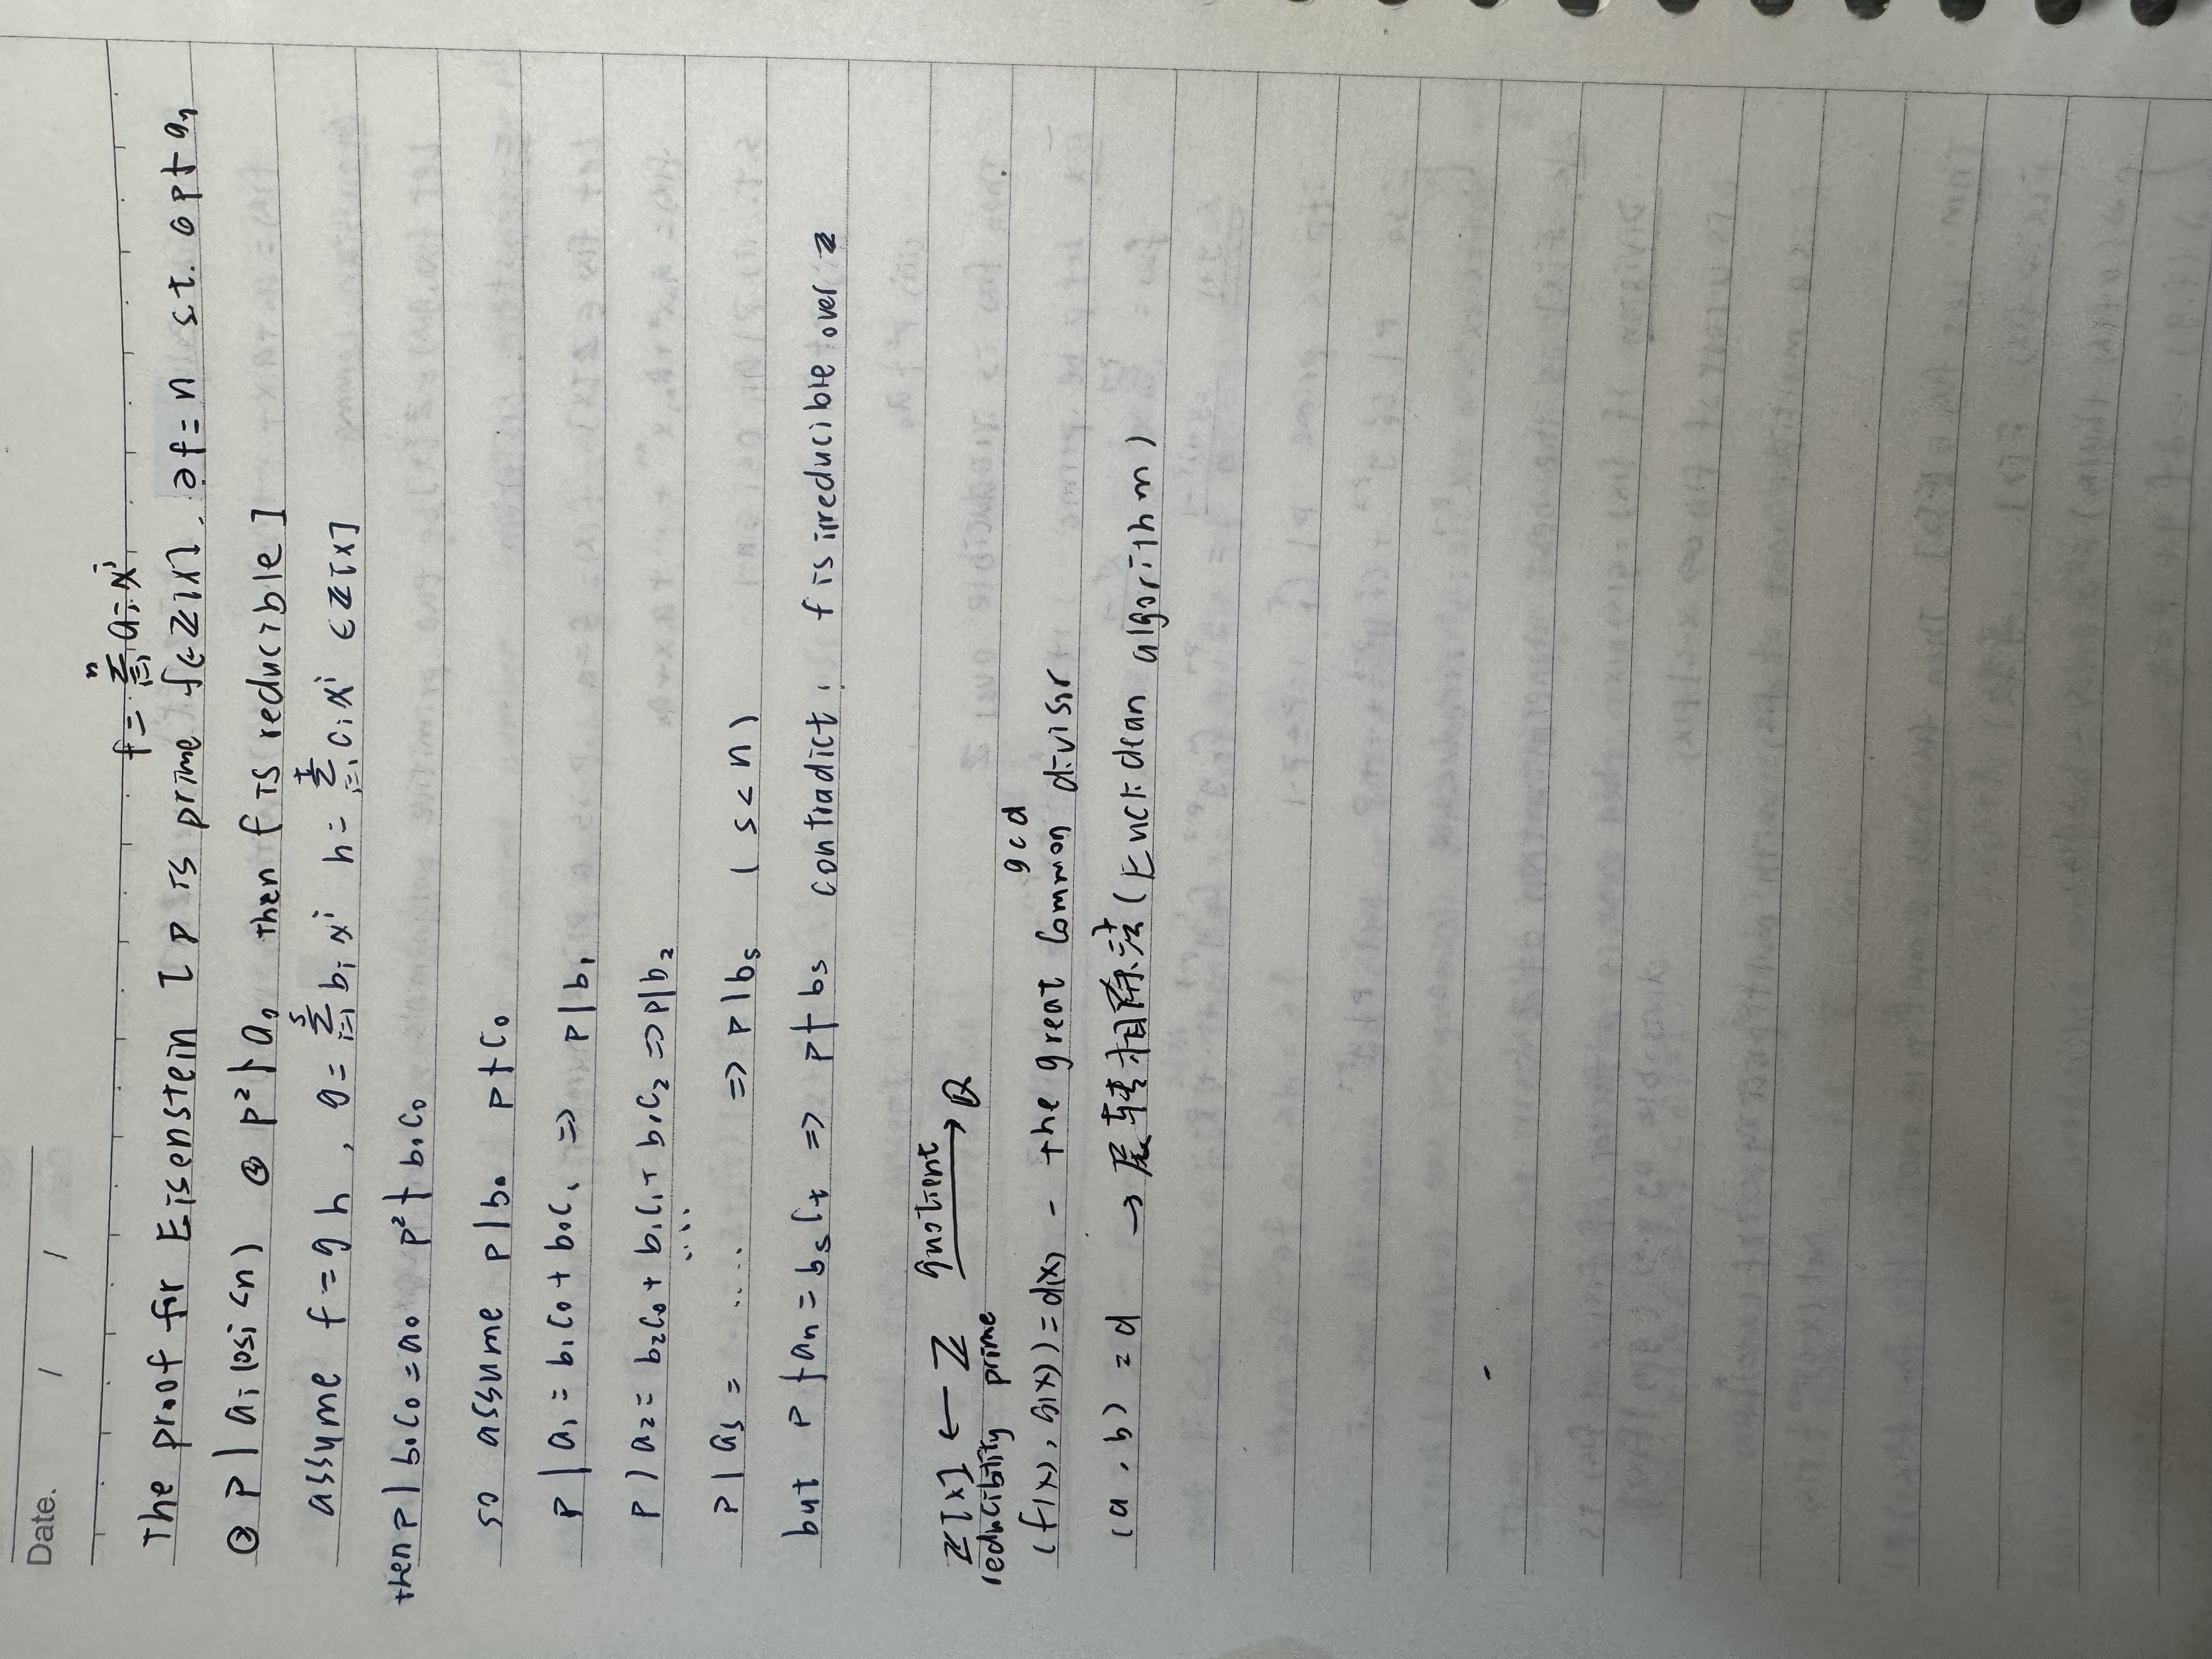 Date. / /
f = \sum_{i=1}^{n} a_i x^i
The proof for Eisenstein [ p is prime f∈ℤ[x]. ∂f=n s.t. ① p∤a_n
② p | a_i (0≤i<n) ③ p²∤a_0 then f is reducible ]
assume f = g h , g = \sum_{i=1}^{s} b_i x^i h = \sum_{i=1}^{t} c_i x^i ∈ℤ[x]
then p | b_0c_0 = a_0 p² ∤ b_0c_0
so assume p | b_0 p∤c_0
p | a_1 = b_1c_0 + b_0c_1 ⇒ p | b_1
p | a_2 = b_2c_0 + b_1c_1 + b_0c_2 ⇒ p|b_2
....
p | a_s = .... ⇒ p | b_s ( s < n )
but p ∤ a_n = b_s c_t ⇒ p∤b_s contradict. f is irreducible over ℤ
ℤ[x] ← ℤ \xrightarrow{quotient} ℚ
reducibility prime
gcd
(f(x), g(x)) = d(x) - the great common divisor
(a, b) = d → 尾转相除法 (Euclidean algorithm)